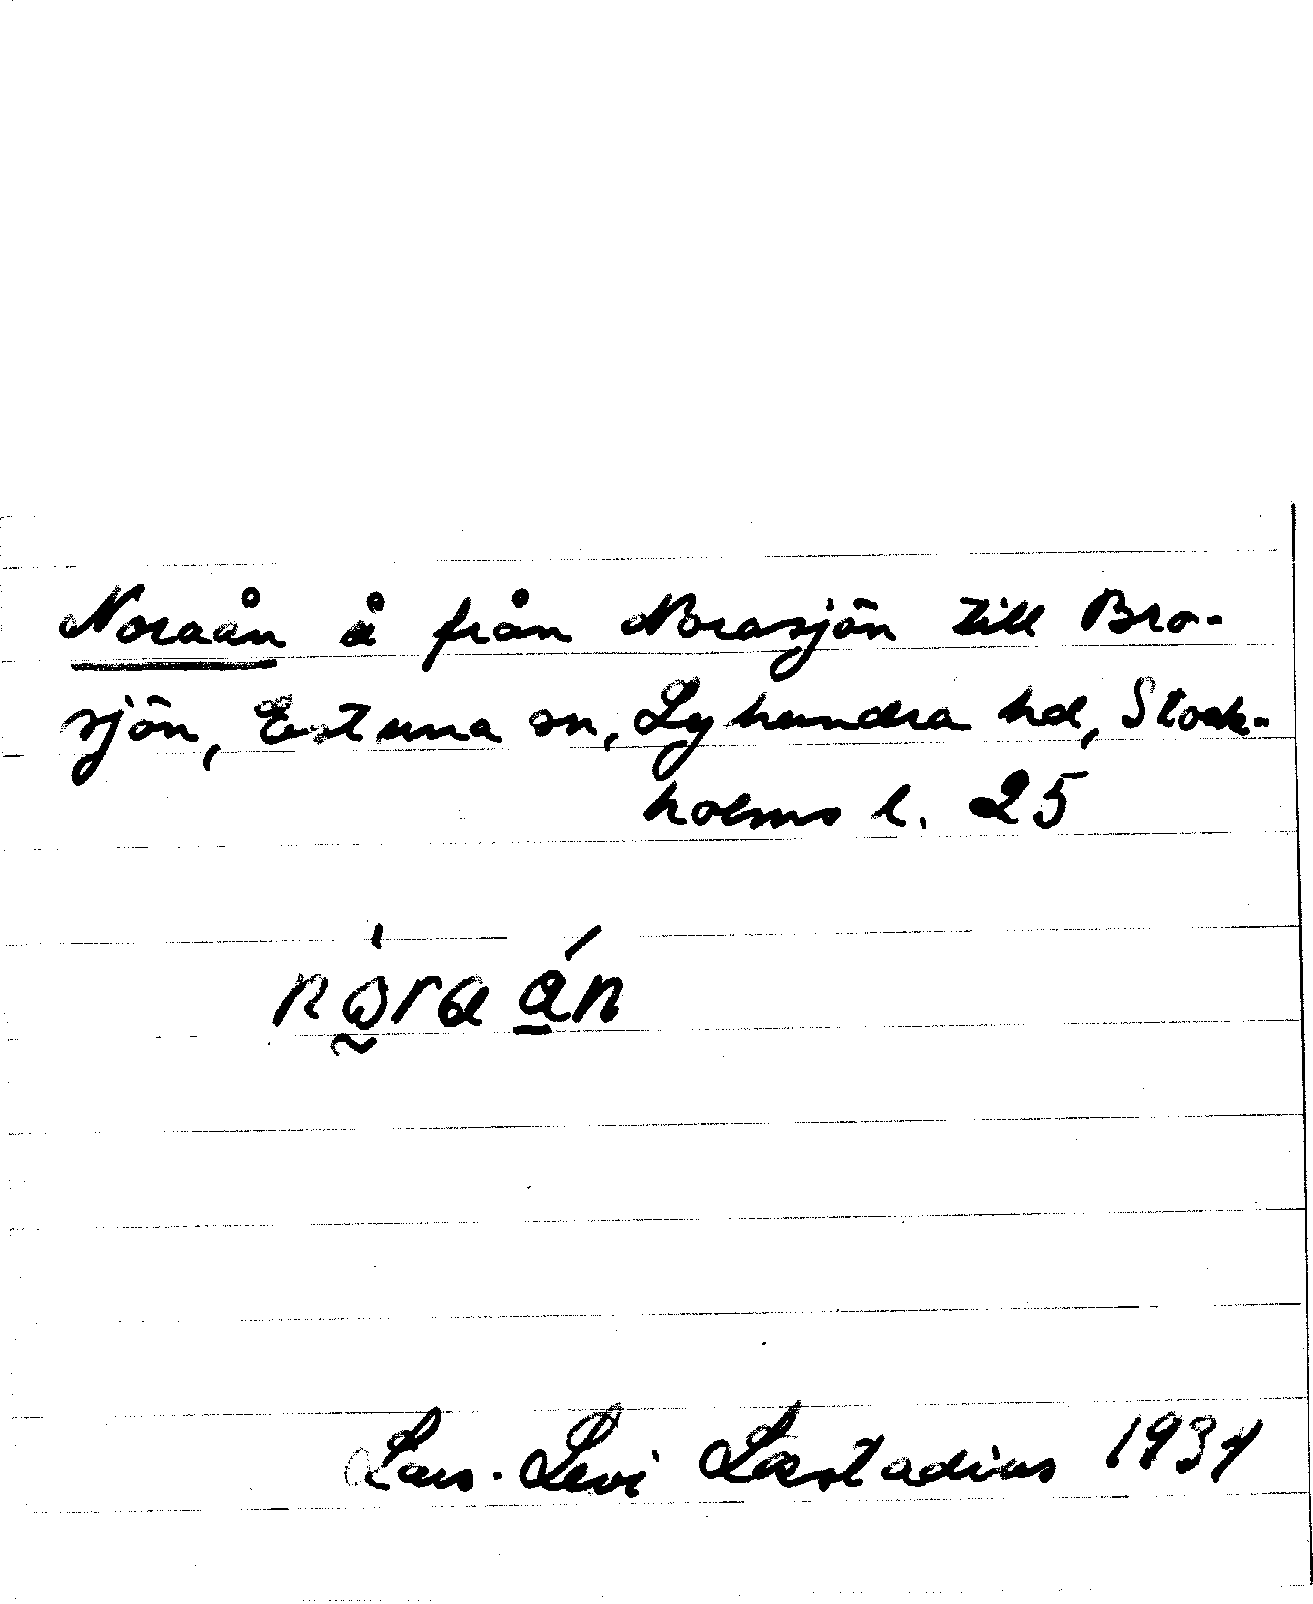 Noraån å från Norasjön till Bro-
sjön, Estuna sn, Lyhundra hd, Stock-
holms l. 25
Lars-Levi Læstadius